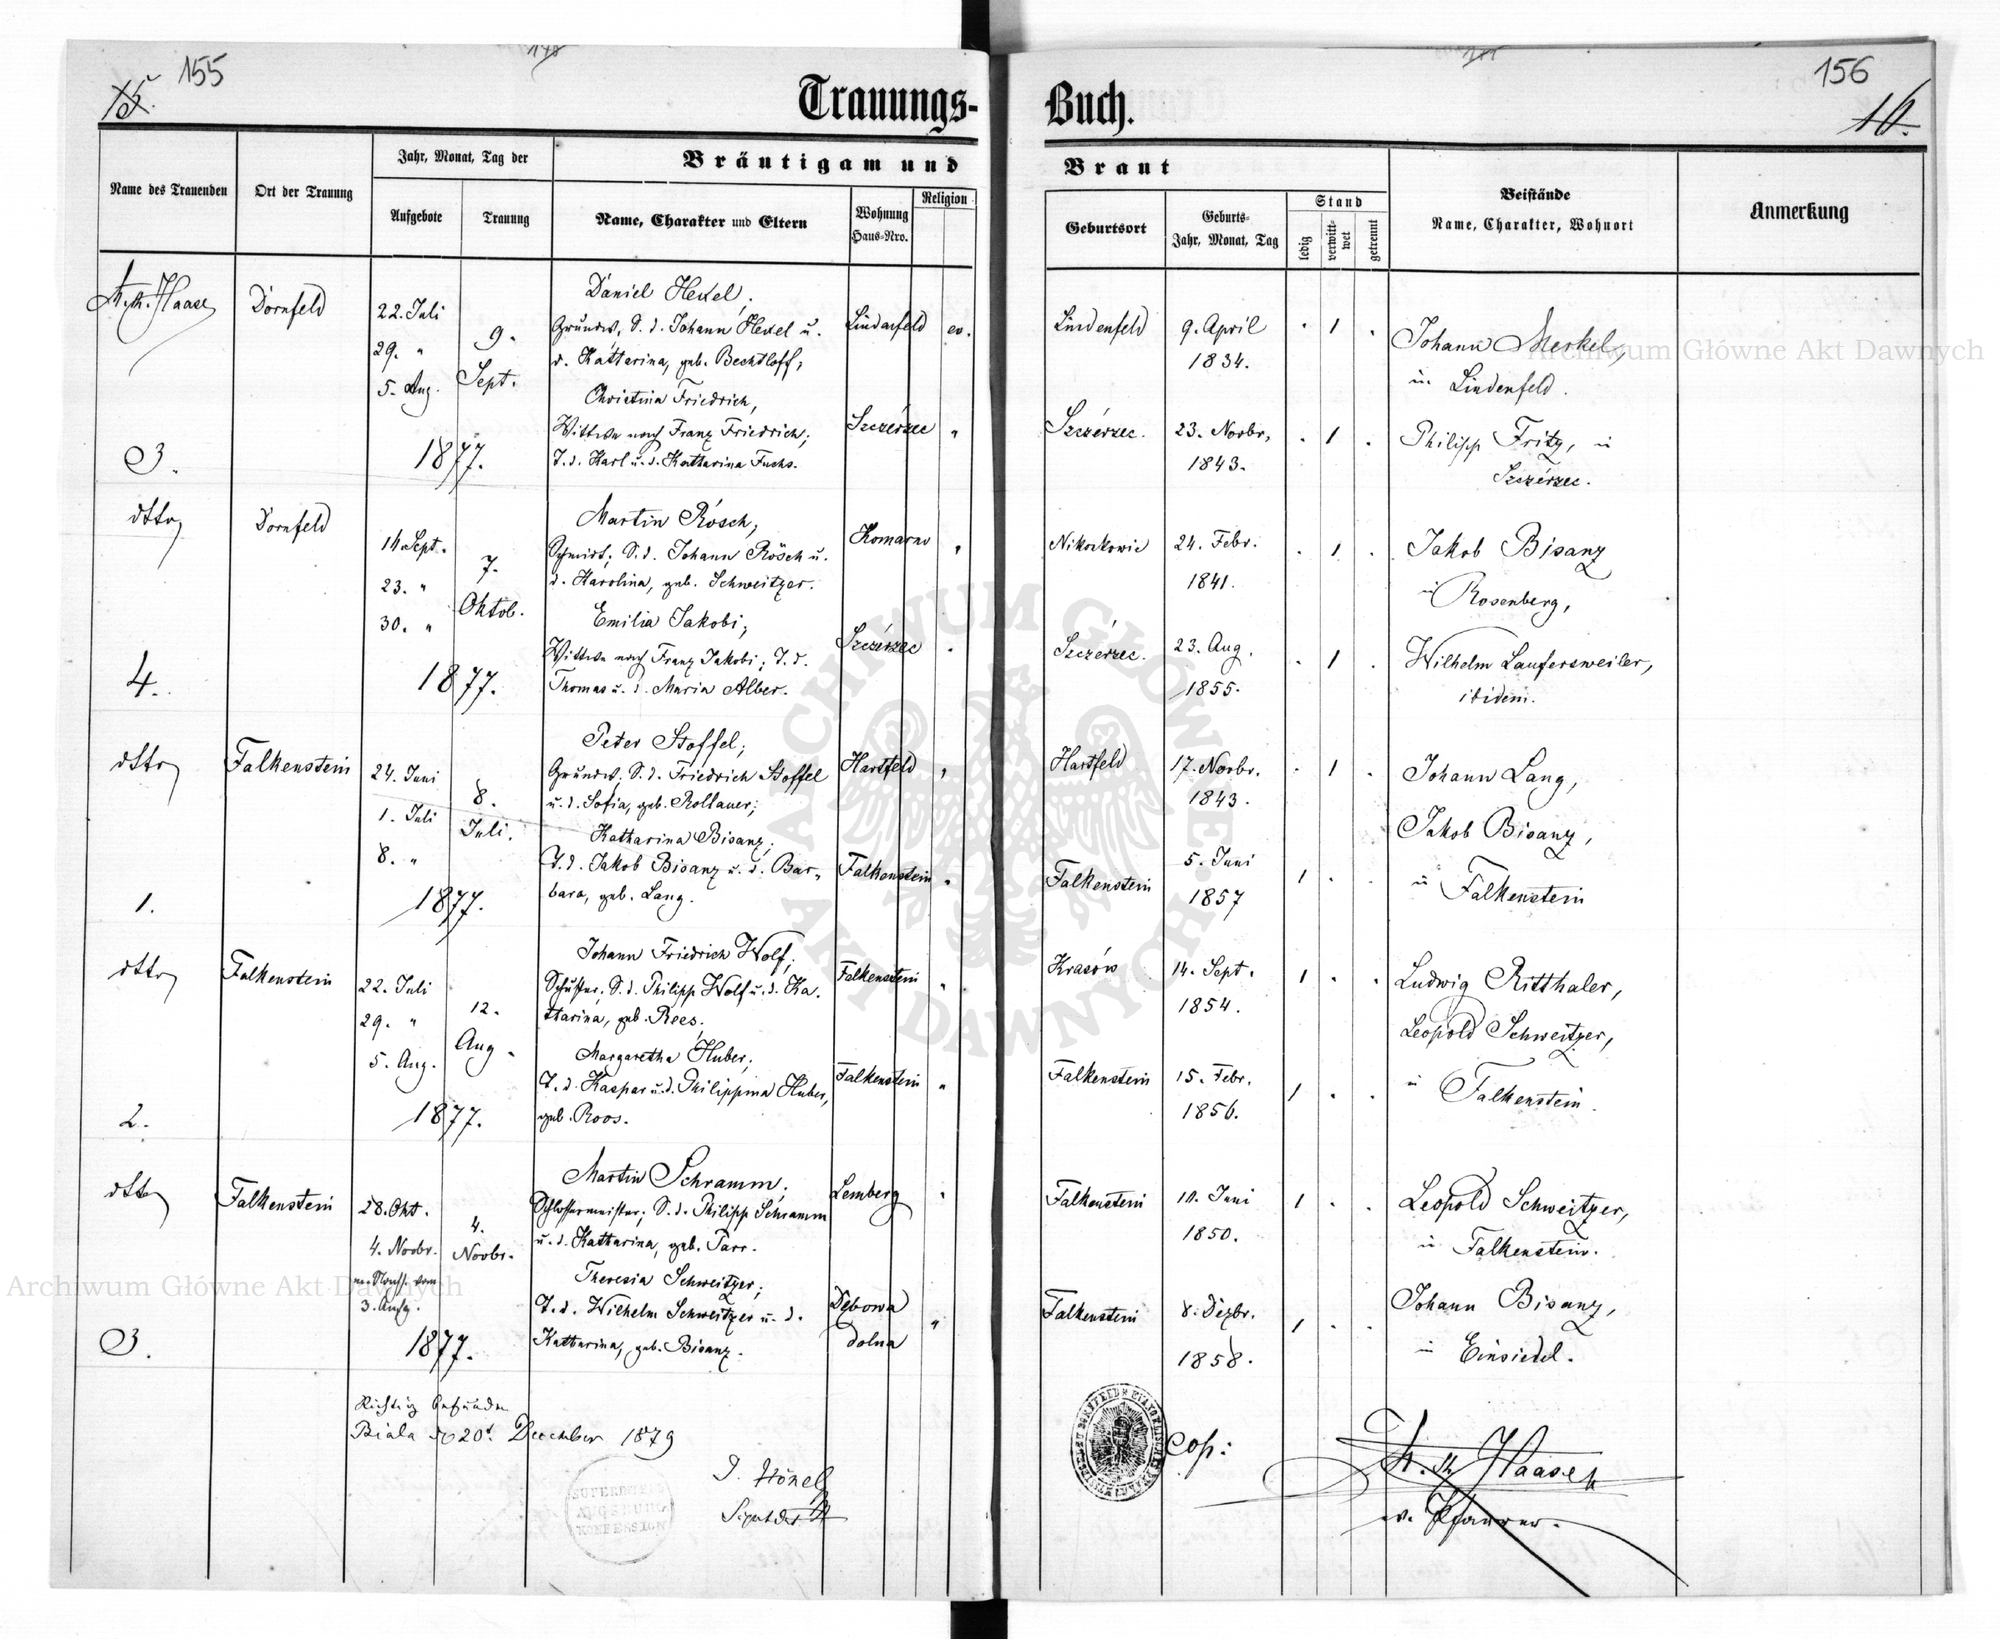 155
15.
Trauungs-
Name des Trauenden
Ort der Trauung
Jahr, Monat, Tag der
Aufgebote
Trauung
Bräutigam und
Name, Charakter und Eltern
Wohnung
Haus-Nro.
Religion
Th. Haase
Dornfeld
22. Juli
29. "
5. Aug.
9.
Sept.
1877.
3.
Daniel Hexel,
Grundw, S. d. Johann Hexel u.
d. Katharina, geb. Bechtloff,
Lindenfeld
ev.
Christina Friedrich,
Wittwe nach Franz Friedrich;
T. d. Karl u. d. Katharina Fuchs.
Szczérzec
"
dtto
Dornfeld
16. Sept.
23. "
30. "
7.
Oktob.
1877.
4.
Martin Rösch,
Schmidt; S. d. Johann Rösch u.
d. Karolina, geb. Schweitzer.
Komarno
"
Emilia Jakobi;
Wittwe nach Franz Jakobi; T. d.
Thomas u. d. Maria Alber.
Szczérzec
"
dtto
Falkenstein
24. Juni
1. Juli
8. "
8.
Juli.
1877.
1.
Peter Stoffel;
Grundw; S. d. Friedrich Stoffel
u. d. Sofia, geb. Rollauer;
Hartfeld
"
Katharina Bisanz;
T. d. Jakob Bisanz u. d. Bar-
bara, geb. Lang.
Falkenstein
"
dtto
Falkenstein
22. Juli
29. "
5. Aug.
12.
Aug.
1877.
2.
Johann Friedrich Wolf;
Schuster; S. d. Philipp Wolf u. d. Ka-
tharina, geb. Rees;
Falkenstein
"
Margaretha Huber;
T. d. Kaspar u. d. Philippina Huber,
geb. Roos.
Falkenstein
"
dtto
Falkenstein
28. Okt.
4. Novbr.
3. Aufg.
4.
Novbr.
1877.
3.
Martin Schramm;
Schlossermeister; S. d. Philipp Schramm
u. d. Katharina, geb. Parr.
Lemberg
"
Theresia Schweitzer;
T. d. Wilhelm Schweitzer u. d.
Katharina, geb. Bisanz.
Dębowa
dolna
"
Richtig befunden
Biala d. 20t. December 1879
J. Hönel
Suptdt
SUPERINTEND
AUGSBURG
KONFESSION
156
16.
Buch.
Braut
Geburtsort
Geburts-
Jahr, Monat, Tag
Stand
ledig
verwitt-
wet
getrennt
Beistände
Name, Charakter, Wohnort
Anmerkung
Lindenfeld
9. April
1834.
. 1 .
Johann Merkel,
in Lindenfeld.
Szczérzec.
23. Novbr,
1843.
. 1 .
Philipp Fritz, in
Szczérzec.
24. Febr.
1841.
. 1 .
Jakob Bisanz
in Rosenberg,
Szczérzec.
23. Aug.
1855.
. 1 .
Wilhelm Laufersweiler,
ibidem.
Hartfeld
17. Novbr.
1843.
. 1 .
Johann Lang,
Jakob Bisanz,
in Falkenstein
Falkenstein
5. Juni
1857
1 . .
Krasów
14. Sept.
1854.
1 . .
Ludwig Ritthaler,
Leopold Schweitzer,
in Falkenstein.
Falkenstein
15. Febr.
1856.
1 . .
Falkenstein
10. Juni
1850.
1 . .
Leopold Schweitzer,
in Falkenstein.
Falkenstein
8. Dezbr.
1858.
1 . .
Johann Bisanz,
in Einsiedel.
Cop:
Th. Haase
ev. Pfarrer.
Archiwum Główne Akt Dawnych
Archiwum Główne Akt Dawnych
ARCHIWUM GŁÓWNE AKT DAWNYCH